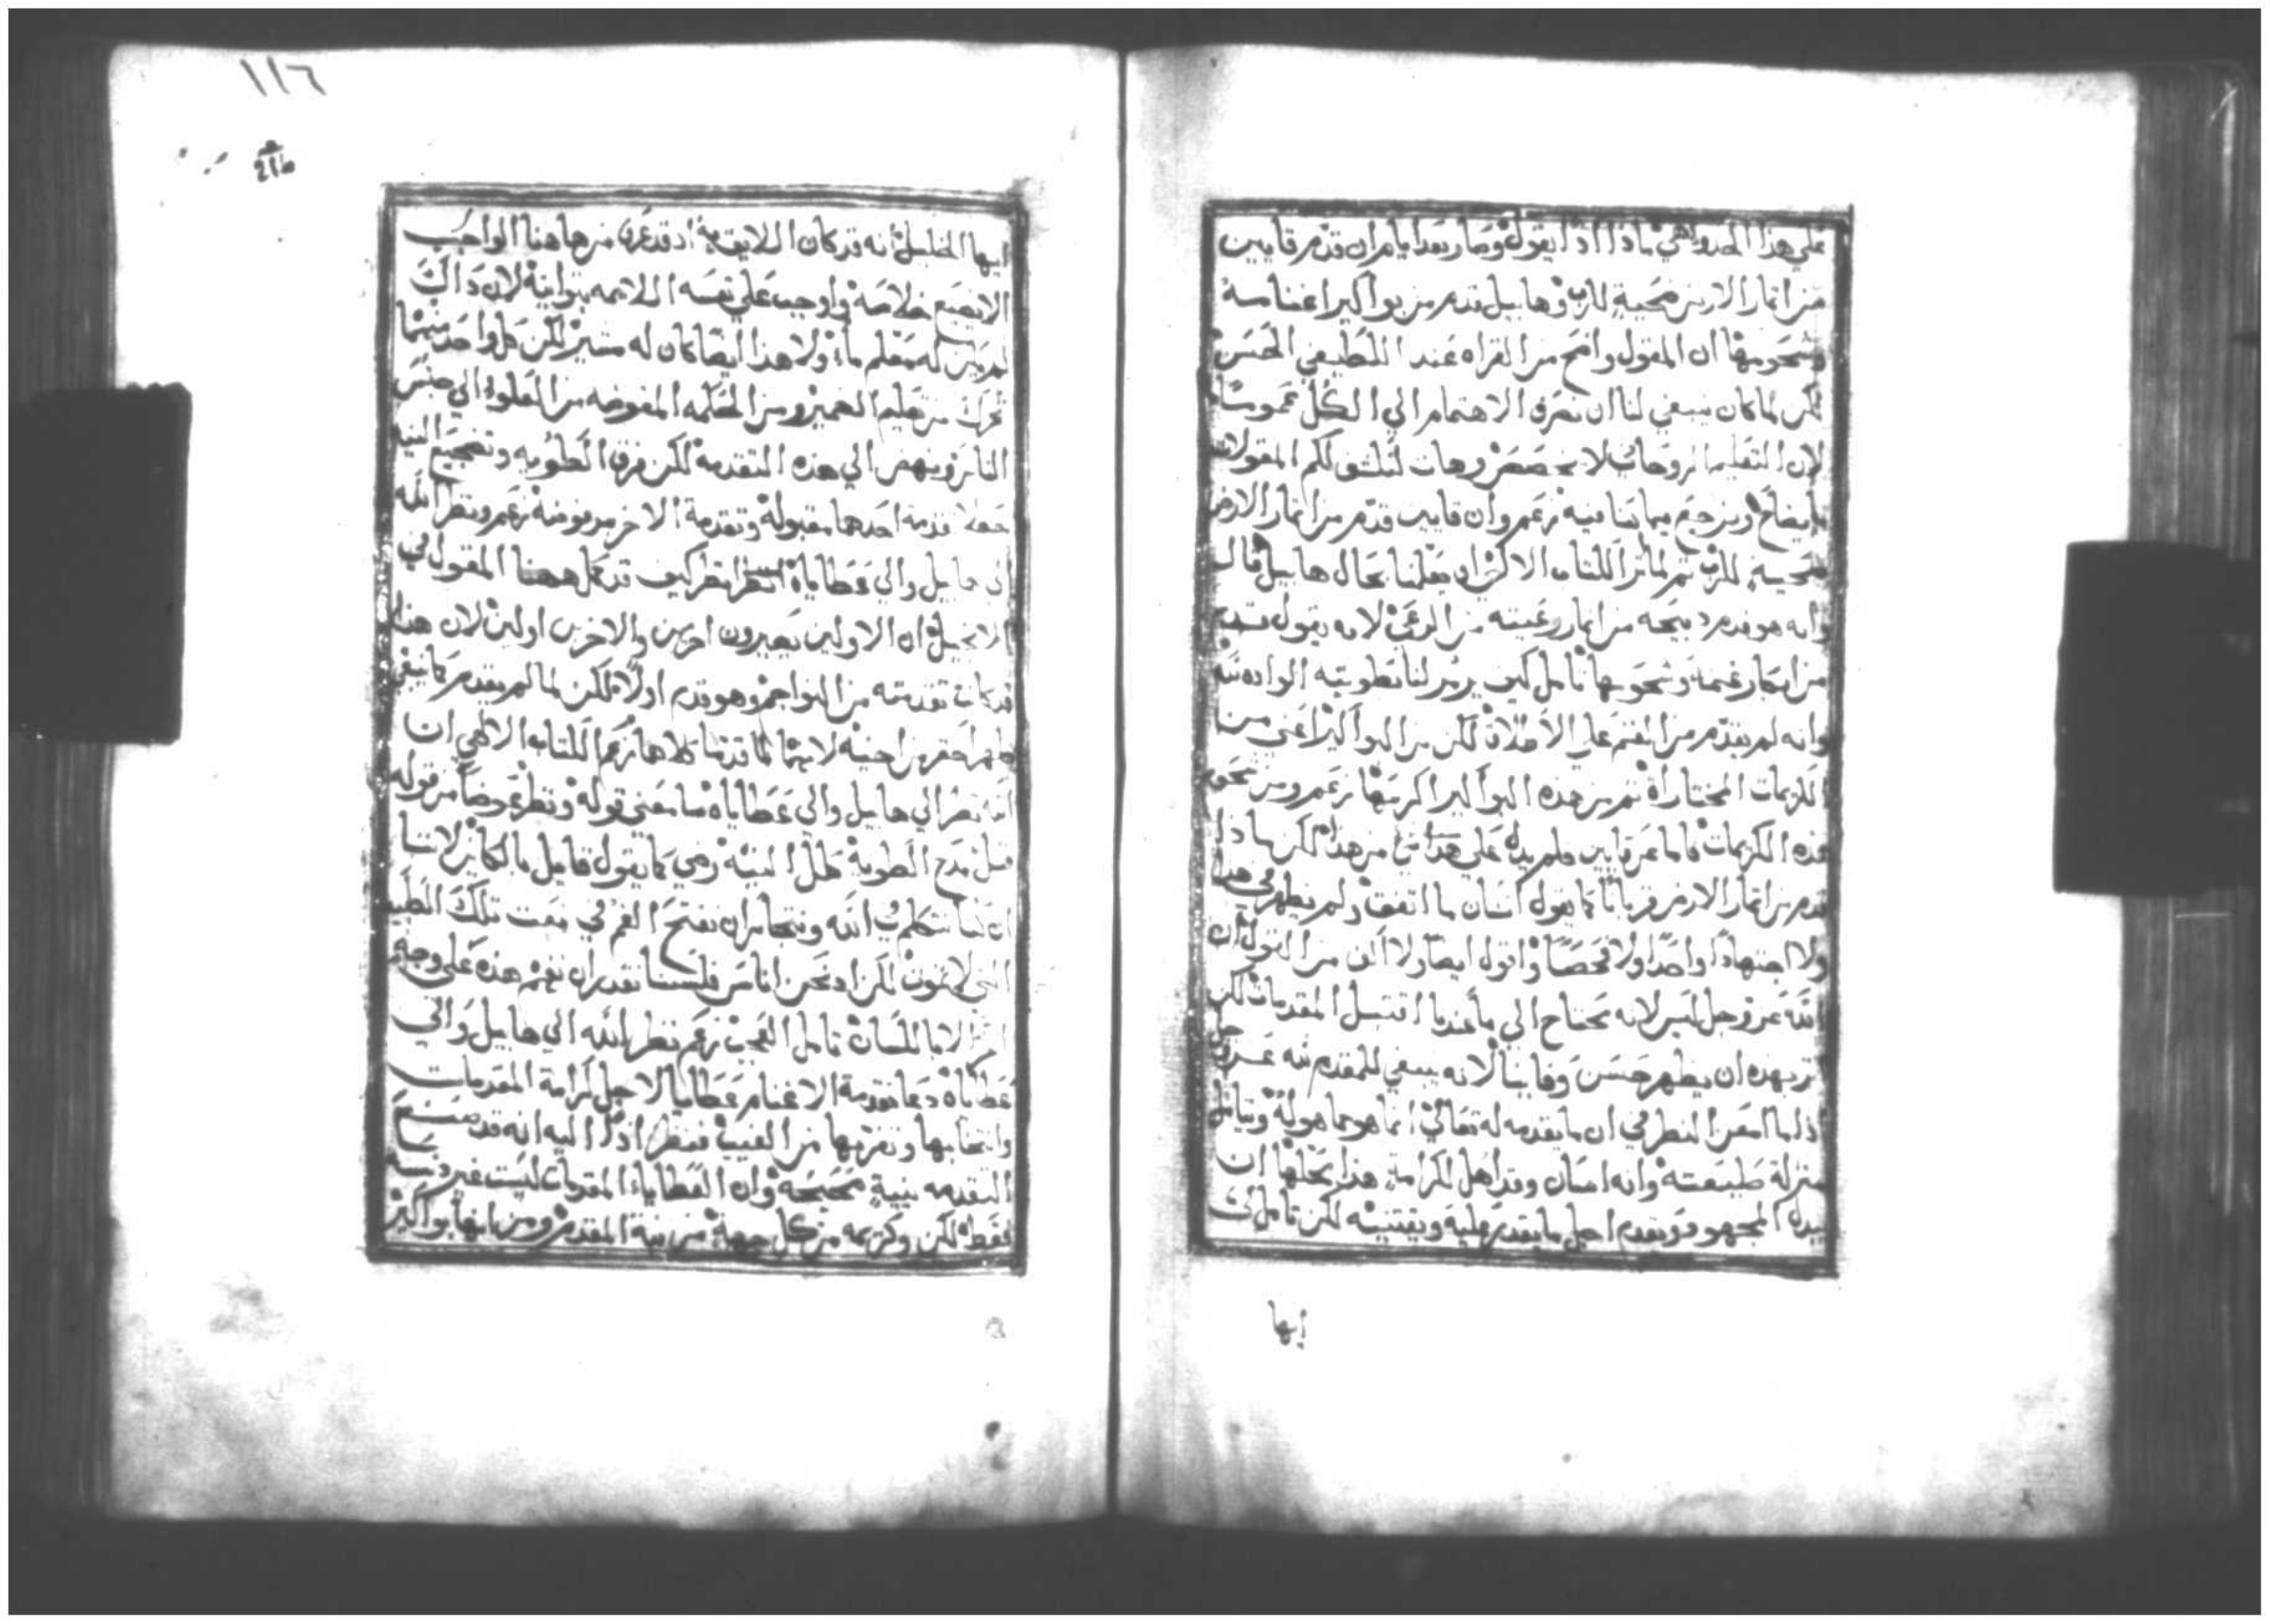 على هذا الحذو اهي ماذا اذا يقول وصار بعد ايام ان قدم قايين
من اثمار الارض ضحية للرب وهابيل قدم من بواكير اغنامه
وشحومها ان المقول واضح من القراه عند اللطيفي الحس
لكن لما كان ينبغي لنا ان نصرف الاهتمام الي الكل عموما
لان التعليم الروحاني لا يخصص هات لنكشف لكم المقولات
بايضاح ونرجع فيما كنا فيه زعم وان قايين قدم من اثمار الارض
ضحية للرب ثم لما اثر الكتاب الاكثر ان يعلمنا بحال هابيل قال
وانه هو قدم ذبيحه من اثمار رعيته من المرعي لانه يقول قدم
من ابكار غنمه وشحومها تامل كيف يرمز لنا بطويته الواده لله
وانه لم يقدم من الغنم علي الاطلاق لكن من البواكير اعني من
الكريمات المختاراة ثم من هذه البواكير اكرمها زعم ومن شحوم
هذه الكريمات فاما عن قايين فلم يدل على هذا شي من هذا لكن ماذا
قدم من اثمار الارض قربانا كما يقول انسان ما اتفق ولم يظهر في هذا
ولا اجتهادا واحدا ولا فحصا واقول ايضا ولا اكف من القول ان
الله عز وجل ليس لانه يحتاج الي ما عندنا اقتبل المقدمات لكن
اثر بهذه ان يظهر حسن وفاينا لانه ينبغي للمقدم لله عز وجل
اذا ما امعن النظر في ان ما يقدمه له تعالي انما هو مما هو له وتامل
منزلة طبيعته وانه انسان وقد اهل لكرامة هذا محلها ان
يبذل المجهود ويقدم اجل ما يقدر عليه ويقتنيه لكن تامل لي
ايها
١١٦
ايها الخليل انه قد كان اللايق به اذ قد عرف من هاهنا الواجب
الا يضيع خلاصه واوجب علي نفسه اللايمه بتوانيه لان ذاك
لم يكن له معلم ما ولا هذا ايضا كان له مشير لكن كل واحد منهما
تحرك من تعليم الضمير ومن الحكمه المفوضه من العلو الي جنس
الناس ونهض الي هذه التقدمه لكن فرق الطويه وتضجيع النيه
جعلا تقدمة احدهما مقبوله وتقدمة الاخر مرفوضه زعم ونظر الله
الي هابيل والي عطاياه انظر كيف قد كمل ههنا المقول في
الانجيل ان الاولين يصيرون اخرين والاخرين اولين لان هذا
قد كانت تقدمته من النواجم وهو قدم اولا لكن لما لم يقدم كما ينبغي
ظهر احقر من اخيه لانهما لما قدما كلاهما زعم الكتاب الالاهي ان
الله نظر الي هابيل والي عطاياه ما معني قوله ونظر عوضا من قوله
قبل مدح الطوية كلل النية رضي كما يقول قايل بالكاين لاننا
ان كنا نتكلم في الله ونتجاسر ان نفتح الفم في نعت تلك الطبيعة
التي لا تموت لكن اذ نحن اناس فلسنا نقدر ان نفهم هذه على وجه
الا باللسان تامل العجب زعم نظر الله الي هابيل والي
عطاياه دعا تقدمة الاغنام عطايا لاجل كرامة المقدمات
وانتخابها وتعريها من العيب فنظر اذا اليه انه قد صنع
التقدمه بنية صحيحه وان العطايا المقدمات ليست غير دنسه
فقط لكن وكريمه من كل جهة من نية المقدم ومن انها بواكير